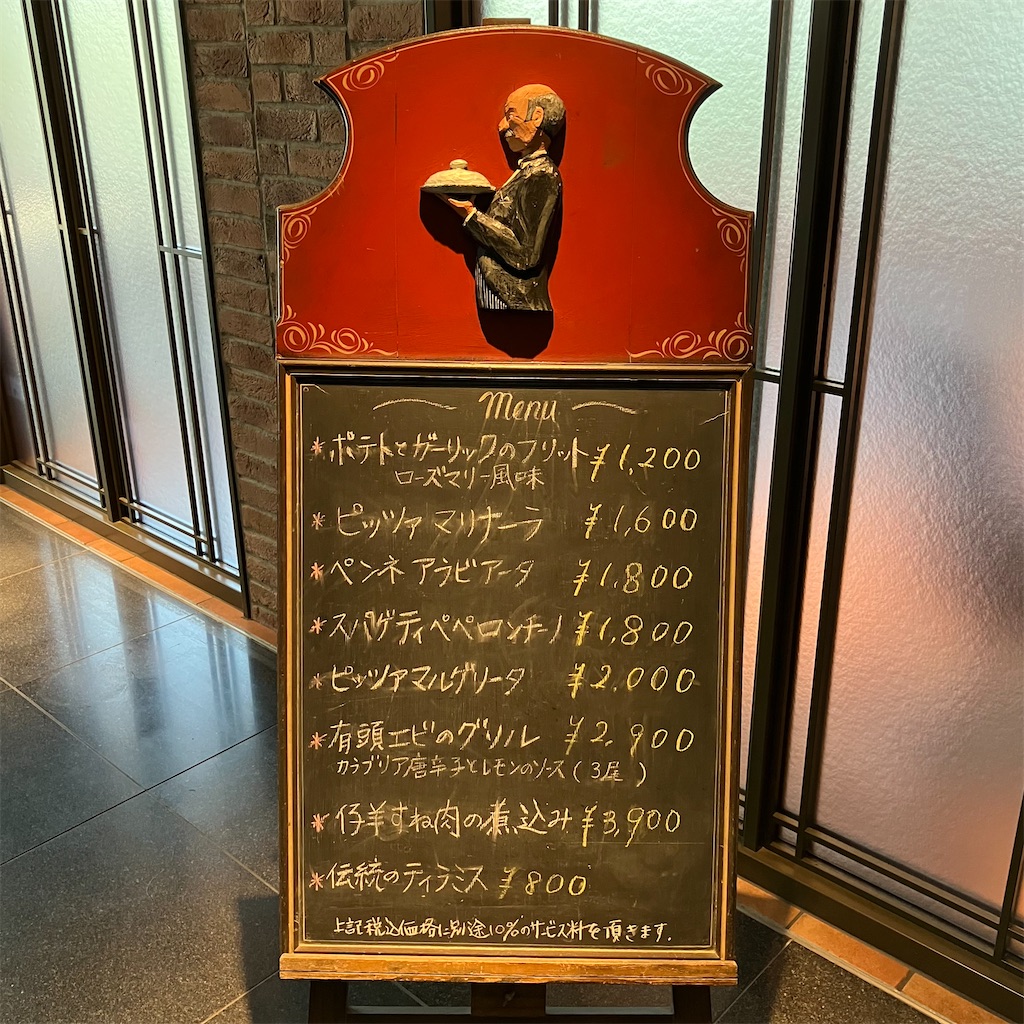 Menu
*ポテトとガーリックのフリット ¥1,200
ローズマリー風味
*ピッツァ マリナーラ ¥1,600
*ペンネ アラビアータ ¥1,800
*スパゲティペペロンチーノ ¥1,800
*ピッツァマルゲリータ ¥2,000
*有頭エビのグリル ¥2,900
カラブリア唐辛子とレモンのソース(3尾)
*仔羊すね肉の煮込み ¥3,900
*伝統のティラミス ¥800
上記税込価格に別途10%のサービス料を頂きます.